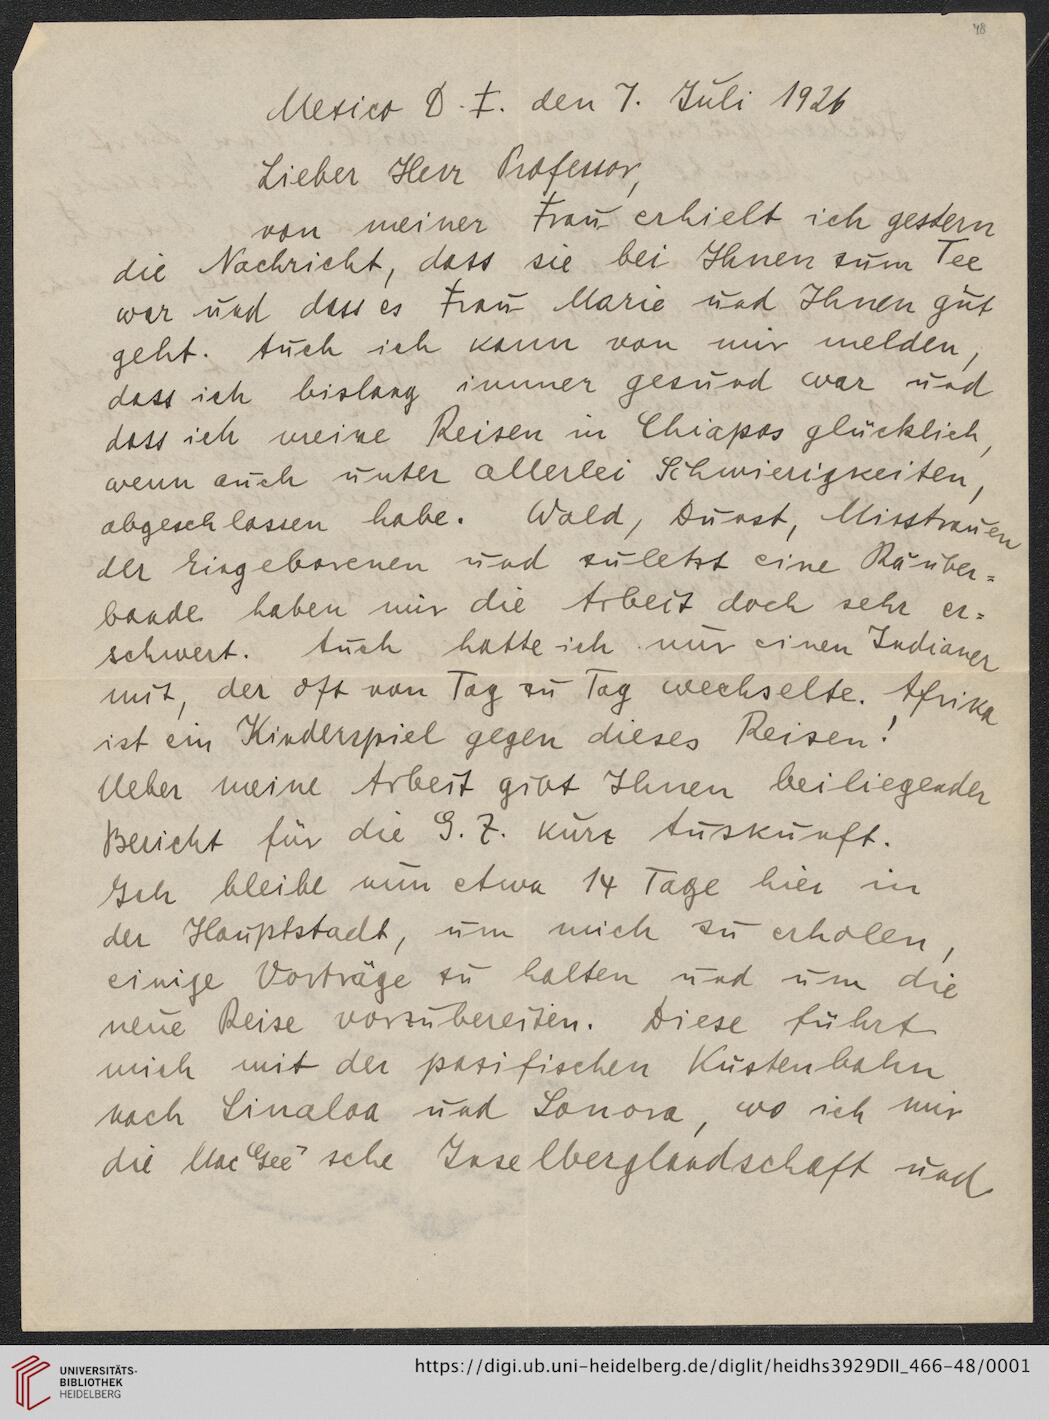 48
Mexico D. F. den 7. Juli 1926
Lieber Herr Professor,
von meiner Frau erhielt ich gestern
die Nachricht, dass sie bei Ihnen zum Tee
war und dass es Frau Marie und Ihnen gut
geht. Auch ich kann von mir melden,
dass ich bislang immer gesund war und
dass ich meine Reisen in Chiapas glücklich,
wenn auch unter allerlei Schwierigkeiten,
abgeschlossen habe. Wald, Durst, Misstrauen
der Eingeborenen und zuletzt eine Räuber=
bande haben mir die Arbeit doch sehr er=
schwert. Auch hatte ich nur einen Indianer
mit, der oft von Tag zu Tag wechselte. Afrika
ist ein Kinderspiel gegen dieses Reisen!
Ueber meine Arbeit gibt Ihnen beiliegender
Bericht für die G. Z. kurz Auskunft.
Ich bleibe nun etwa 14 Tage hier in
der Hauptstadt, um mich zu erholen,
einige Vorträge zu halten und um die
neue Reise vorzubereiten. Diese führt
mich mit der pazifischen Küstenbahn
nach Sinaloa und Sonora, wo ich mir
die Mac Gee'sche Inselberglandschaft und
UNIVERSITÄTS-
BIBLIOTHEK
HEIDELBERG
https://digi.ub.uni-heidelberg.de/diglit/heidhs3929DII_466-48/0001